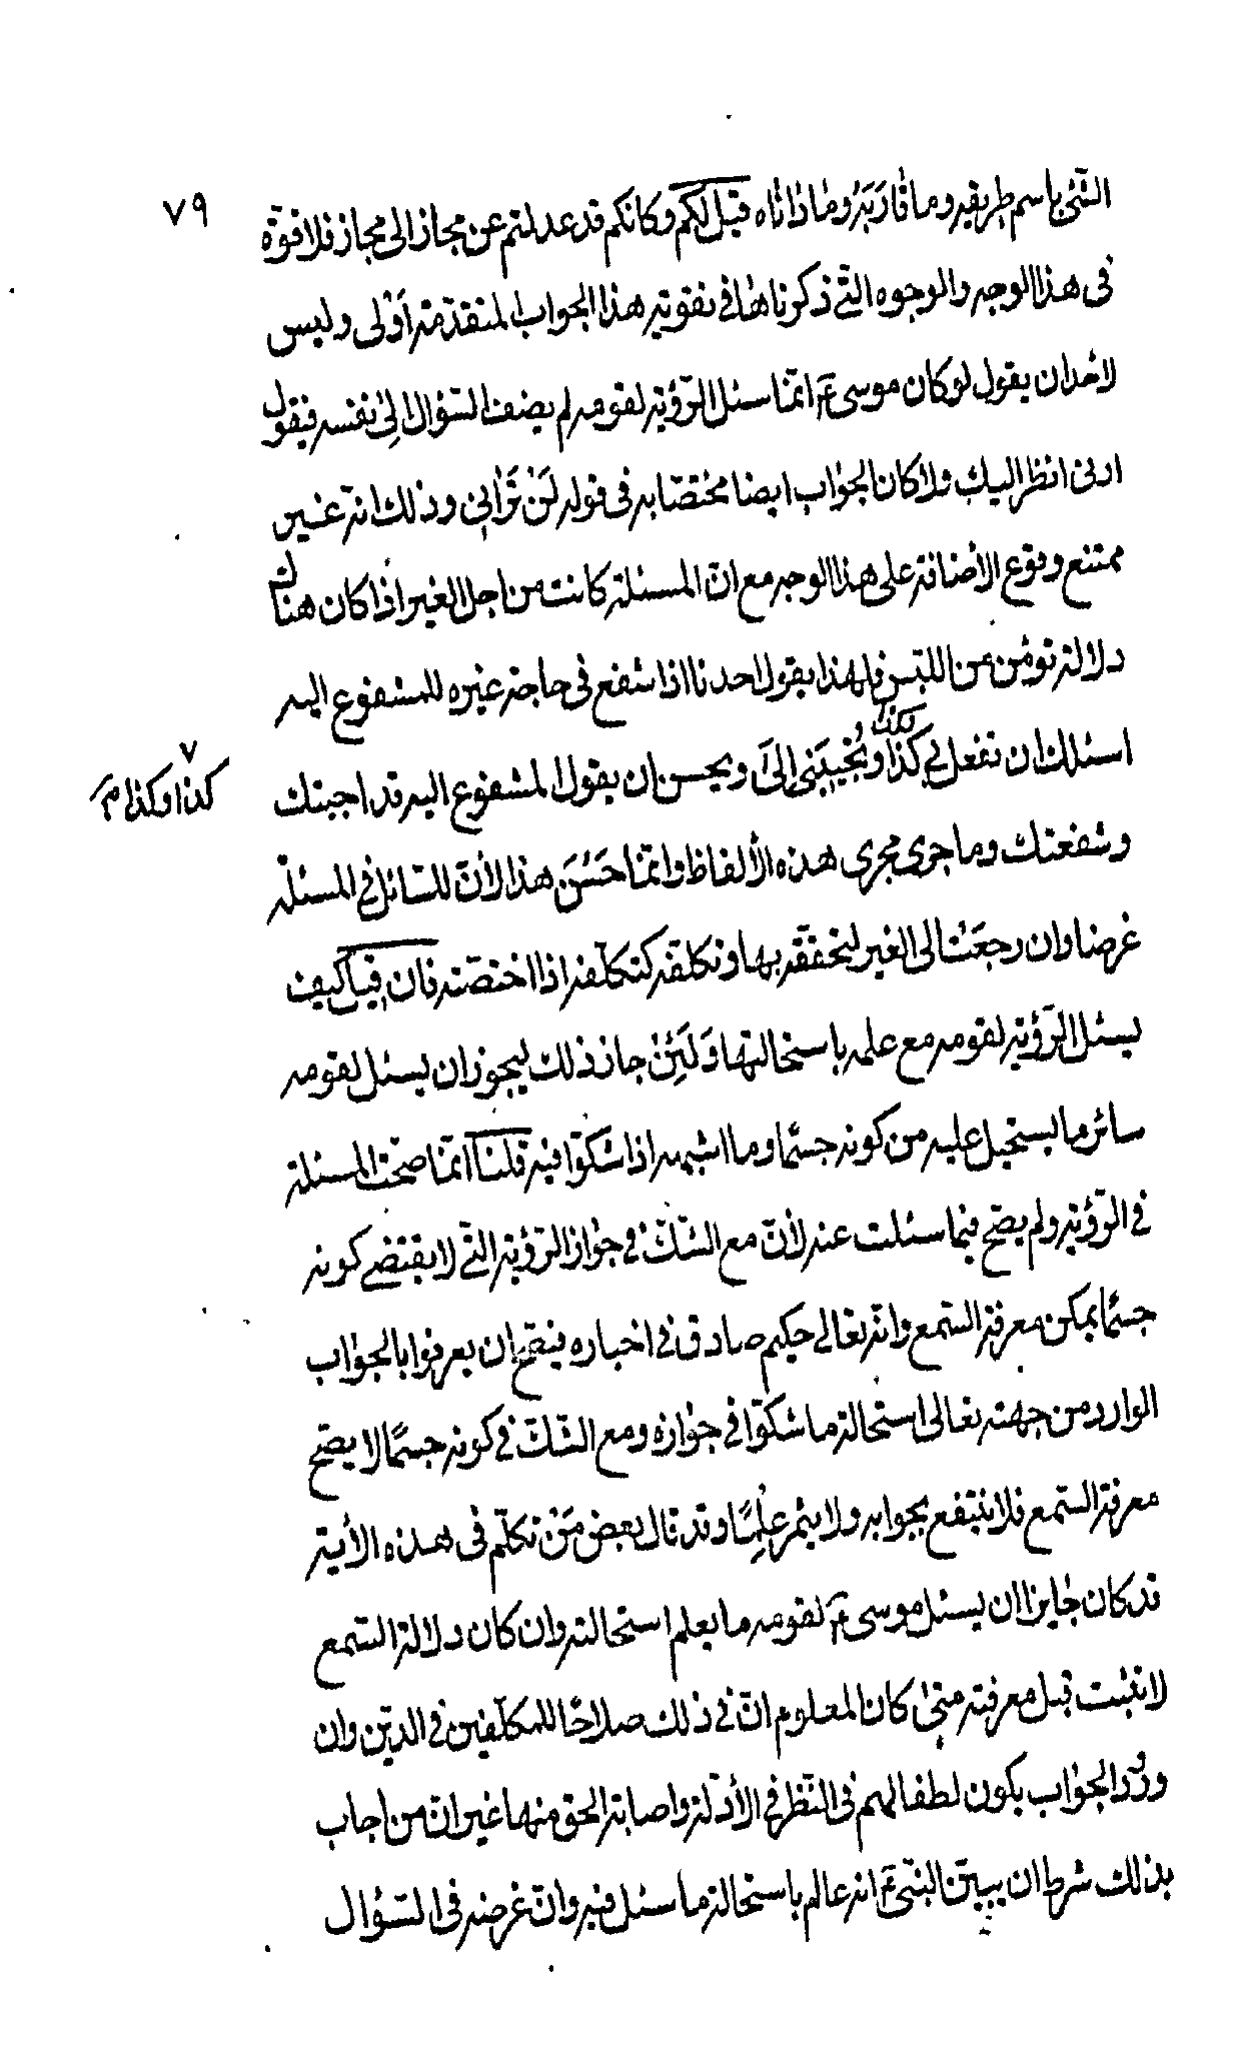 ٧٩
الشّئ باسم طريقه وما قاربه وما داناه قيل لكم وكانّكم قد عدلتم عن مجاز الى مجاز فلا قوّة
فى هذا الوجه والوجوه الّتي ذكرناها في تقوية هذا الجواب المتقدّمة اَوْلى وليس
لاحد ان يقول لو كان موسى ع انّما سئل الرّؤية لقومه لم يضف السّؤال الى نفسه فيقول
ارنى انظر اليك ولا كان الجواب ايضا مختصّا به في قوله لَنْ تَرٰانِى وذلك انّه غير
ممتنع وقوع الأضافة على هذا الوجه مع انّ المسئلة كانت من اجل الغير اذا كان هناك
دلالة تؤمن من اللبس فلهذا يقول احدنا اذا شفع في حاجة غيره للمشفوع اليه
اسئلك ان تفعل بي كذا وتُجيبَنى الىٰ ذلك ويحسن ان يقول المشفوع اليه قد اجبتك
كذا وكذا م
وشفعتك وما جرى مجرى هذه الألفاظ وانّما حَسُنَ هذا لأنّ للسّائل في المسئلة
غرضا وان رجعَتْ الى الغير لتحققه بها وتكلّفه كتكلّفه اذا اختصّته فان قيل كيف
يسئل الرّؤية لقومه مع علمه باستحالتها وَلَئِنْ جاز ذلك ليجوز ان يسئل لقومه
سائر ما يستحيل عليه من كونه جسمًا وما اشبهه اذا شكّوا فيه قلنا انّما صحّت المسئلة
في الرّؤية ولم يصحّ فيما سئلت عنه لأنّ مع الشّكّ في جواز الرّؤية التّي لا يقتضي كونه
جسمًا يمكن معرفة السّمع وانّه تعالى حكيم صادق في اخباره فيصحّ ان يعرفوا بالجواب
الوارد من جهته تعالى استحالة ما شكّوا في جوازه ومع الشّكّ في كونه جسمًا لا يصحّ
معرفة السّمع فلا ينتفع بجوابه ولا يثمر عِلْمًا وقد قال بعض مَنْ تكلّم في هذه الأية
قد كان جايزا ان يسئل موسى ع لقومه ما يعلم استحالته وان كان دلالة السّمع
لا تثبت قبل معرفته متىٰ كان المعلوم انّ في ذلك صلاحًا للمكلّفين في الدّين وان
ورود الجواب يكون لطفا لهم في النّظر في الأدلّة واصابة الحق منها غير انّ من اجاب
بذلك شرط ان يبيّن النبيّ ع انّه عالم باستحالة ما سئل فيه وانّ غرضه في السّؤال